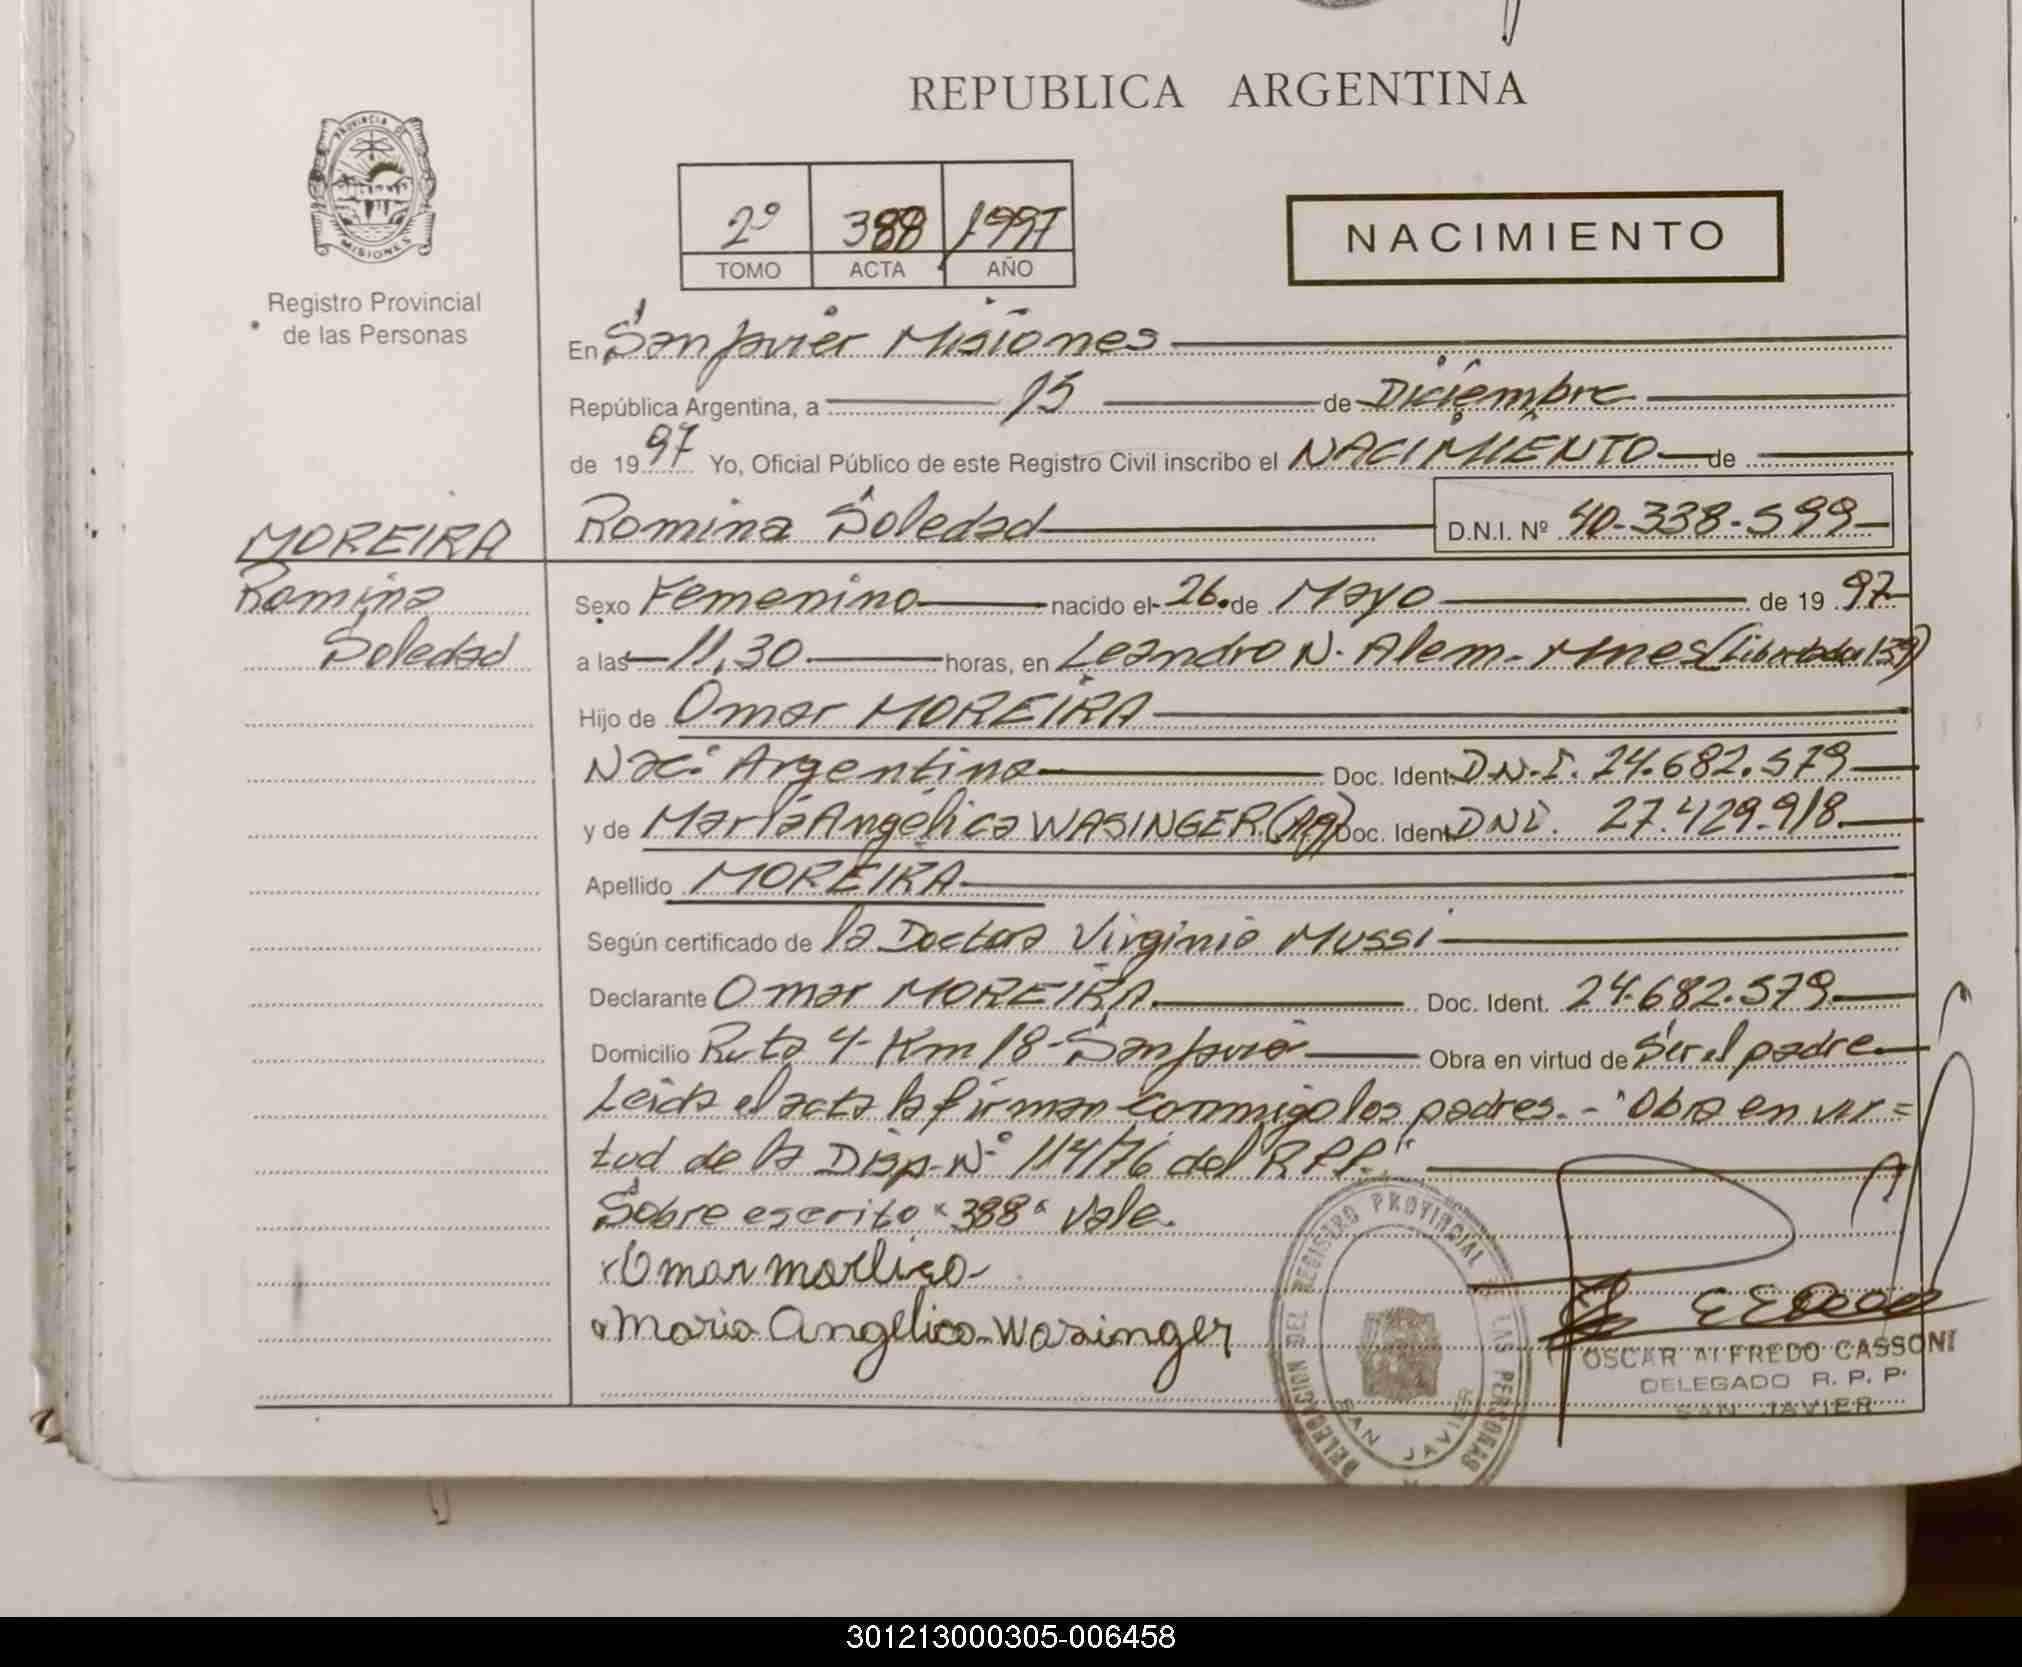 REPUBLICA ARGENTINA
PROVINCIA DE
MISIONES
Registro Provincial
de las Personas
2º 388 1997
TOMO ACTA AÑO
NACIMIENTO
En San Javier Misiones
República Argentina, a 15 de Diciembre
de 1997 Yo, Oficial Público de este Registro Civil inscribo el NACIMIENTO de
MOREIRA
Romina Soledad D.N.I. Nº 40.338.599
Romina
Sexo Femenino nacido el 26 de Mayo de 1997
Soledad
a las 11,30 horas, en Leandro N. Alem - Mnes
Hijo de Omar MOREIRA
Nac: Argentina Doc. Ident. D.N.I. 24.682.579
y de María Angélica WASINGER (Arg) Doc. Ident. DNI. 27.429.918
Apellido MOREIRA
Según certificado de la Doctora Virginia Mussi
Declarante Omar MOREIRA Doc. Ident. 24.682.579
Domicilio Ruta 4 - Km 18 - San Javier Obra en virtud de Ser el padre
Leida el acta la firman conmigo los padres. - "Obra en vir=
tud de la Disp. Nº 114/76 del R.P.P."
Sobre escrito "388" Vale.
Omar
Maria Angelica Wasinger
DELEGACION DEL REGISTRO PROVINCIAL DE LAS PERSONAS
SAN JAVIER
OSCAR ALFREDO CASSONI
DELEGADO R. P. P.
SAN JAVIER
301213000305-006458